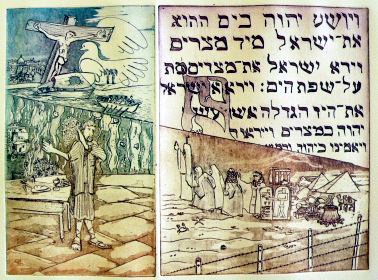 ויושע יהוה בים ההוא
את־ישראל מיד מצרים
וירא ישראל את־מצרים מת
על־שפת הים: וירא ישראל
את־היד הגדלה אשר עש
יהוה במצרים וייראו
ויאמינו ביהוה